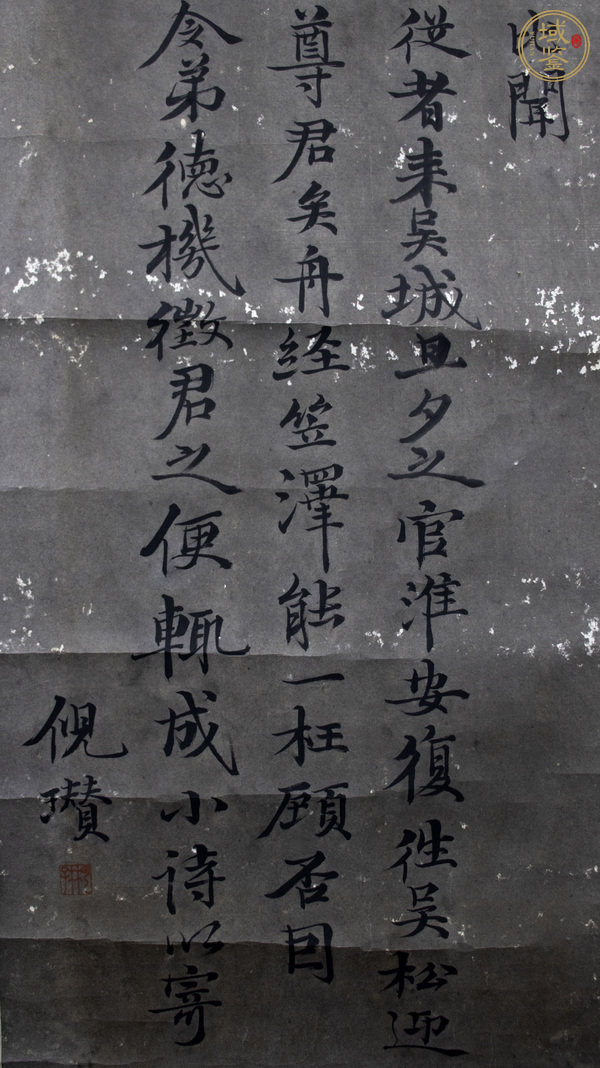 聞
從者来吴城旦夕之官淮安復徃吴松迎
尊君矣舟経笠澤能一枉顧否因
令弟德機徵君之便輒成小詩以寄
倪瓚
域鉴